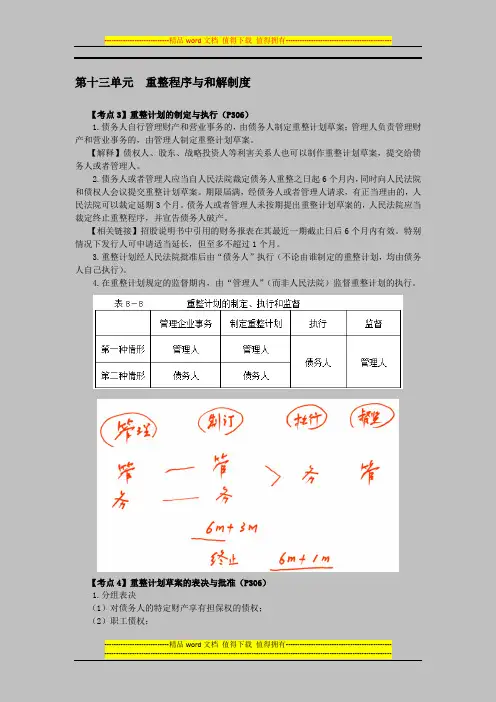 ---------------------------精品word文档 值得下载 值得拥有---------------------------------------------
第十三单元 重整程序与和解制度
【考点3】重整计划的制定与执行(P306)
1.债务人自行管理财产和营业事务的,由债务人制定重整计划草案;管理人负责管理财
产和营业事务的,由管理人制定重整计划草案。
【解释】债权人、股东、战略投资人等利害关系人也可以制作重整计划草案,提交给债
务人或者管理人。
2.债务人或者管理人应当自人民法院裁定债务人重整之日起6个月内,同时向人民法院
和债权人会议提交重整计划草案。期限届满,经债务人或者管理人请求,有正当理由的,人
民法院可以裁定延期3个月。债务人或者管理人未按期提出重整计划草案的,人民法院应当
裁定终止重整程序,并宣告债务人破产。
【相关链接】招股说明书中引用的财务报表在其最近一期截止日后6个月内有效。特别
情况下发行人可申请适当延长,但至多不超过1个月。
3.重整计划经人民法院批准后由“债务人”执行(不论由谁制定的重整计划,均由债务
人自己执行)。
4.在重整计划规定的监督期内,由“管理人”(而非人民法院)监督重整计划的执行。
表8-8 重整计划的制定、执行和监督
管理企业事务 制定重整计划 执行 监督
第一种情形 管理人 管理人 债务人 管理人
第二种情形 债务人 债务人
管理 制订 执行 监督
管 — 管 > 务 管
务 — 务
6m+3m
终止 6m+1m
【考点4】重整计划草案的表决与批准(P306)
1.分组表决
(1)对债务人的特定财产享有担保权的债权;
(2)职工债权;
---------------------------精品word文档 值得下载 值得拥有---------------------------------------------